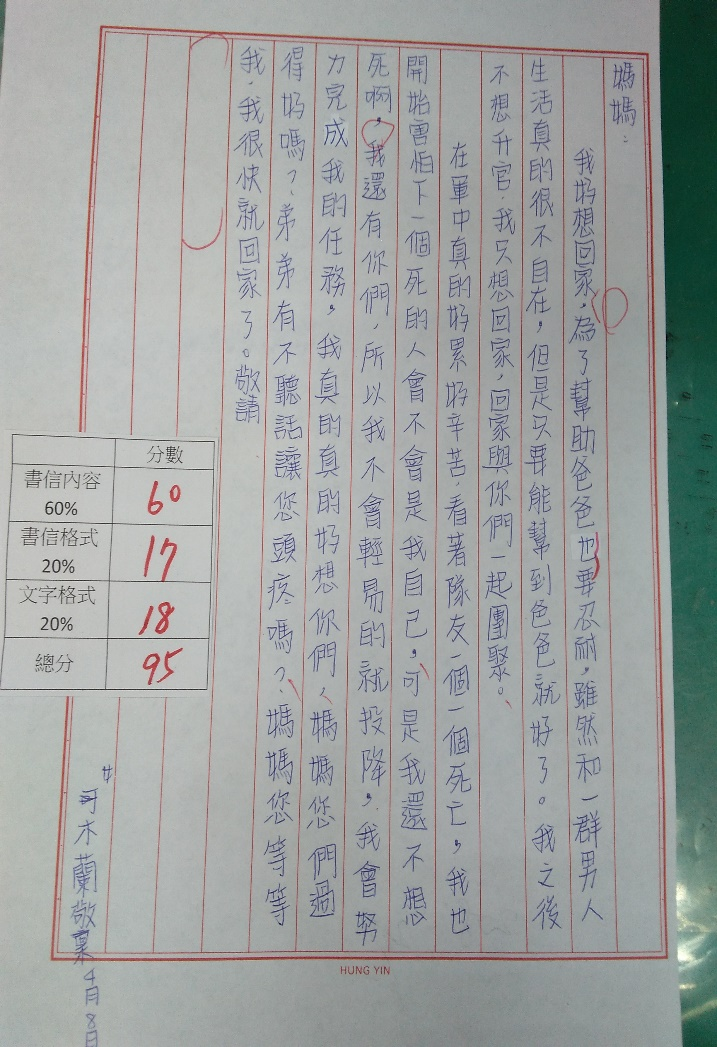 媽媽：
我好想回家，為了幫助爸爸也要忍耐，雖然和一群男人
生活真的很不自在，但是只要能幫到爸爸就好了。我之後
不想升官，我只想回家，回家與你們一起團聚。
在軍中真的好累好辛苦，看著隊友一個一個死亡，我也
開始害怕下一個死的人會不會是我自己，可是我還不想
死啊，我還有你們，所以我不會輕易的就投降，我會努
力完成我的任務，我真的真的好想你們，媽媽您們過
得好嗎？弟弟有不聽話讓您頭疼嗎？媽媽您等等
我，我很快就回家了。敬請
女
木蘭敬稟4月8日
分數
書信內容
60%
60
書信格式
20%
17
文字格式
20%
18
總分
95
HUNG YIN